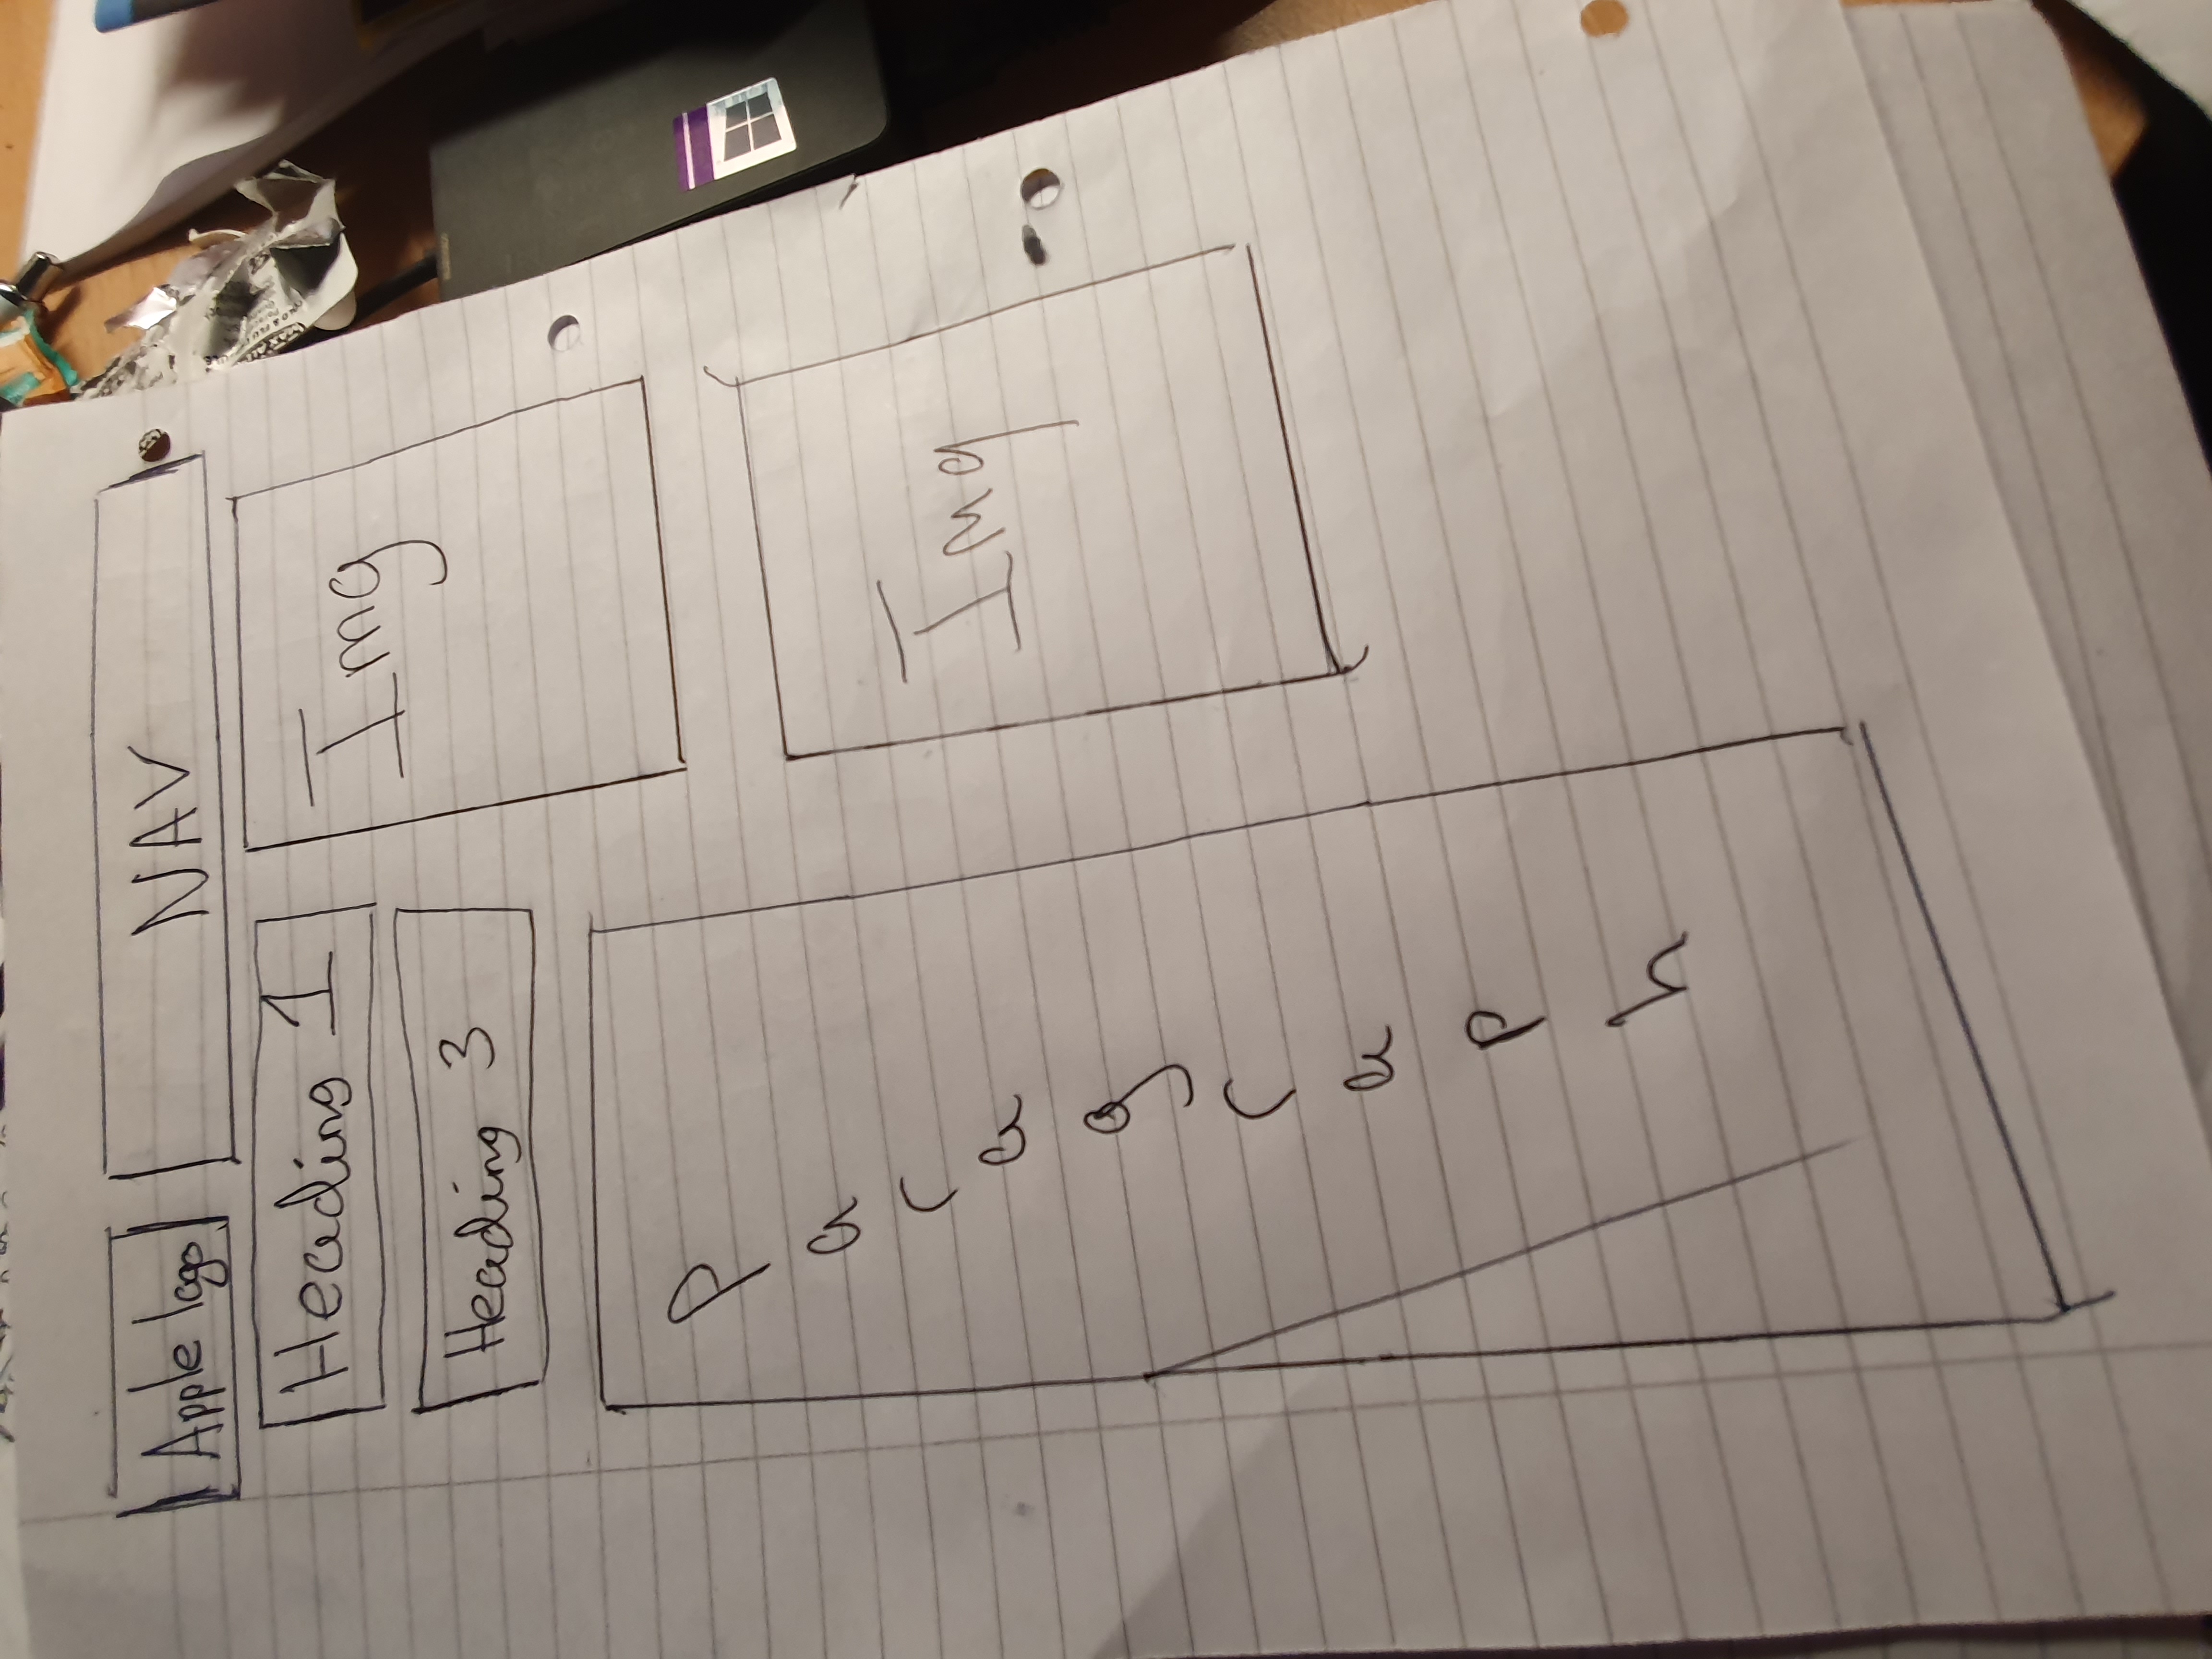 Apple logo
NAV
Heading 1
Img
Heading 3
Paragraph
Img